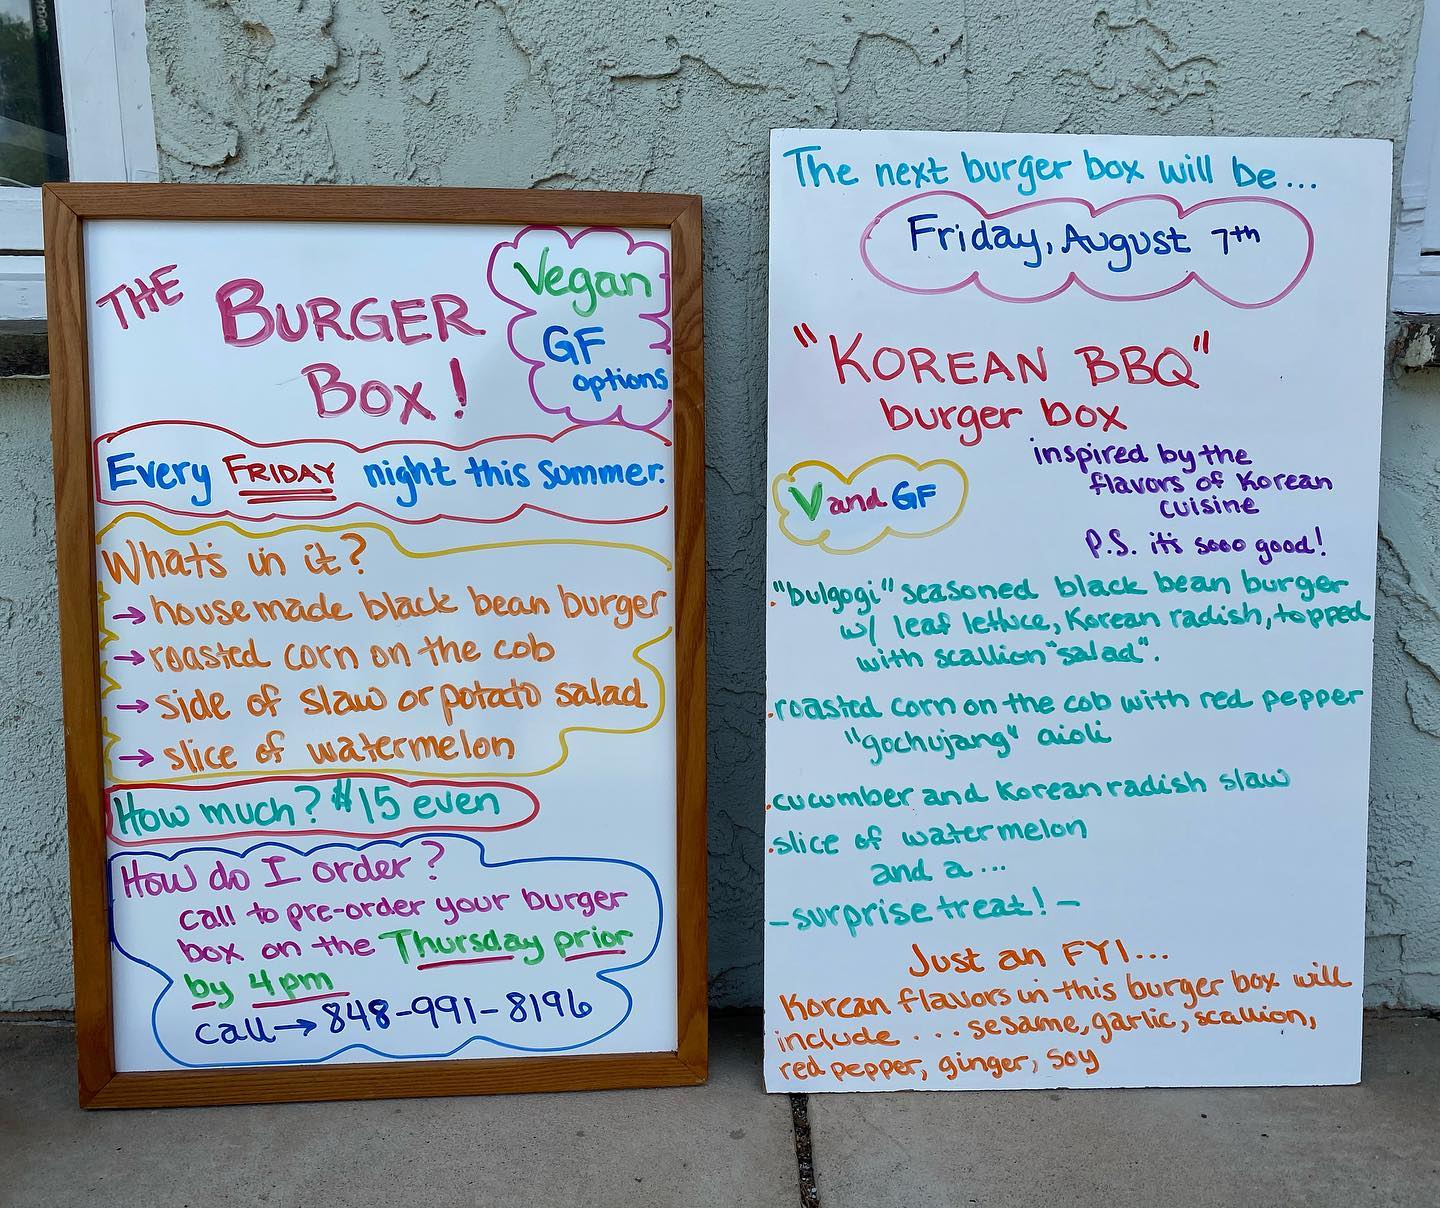 THE BURGER
BOX!
Vegan
GF
options
Every FRIDAY night this summer.
What's in it?
→ housemade black bean burger
→ roasted corn on the cob
→ side of slaw or potato salad
→ slice of watermelon
How much? $15 even
How do I order?
call to pre-order your burger
box on the Thursday prior
by 4pm
call → 848-991-8196
The next burger box will be...
Friday, August 7th
"KOREAN BBQ"
burger box
V and GF
inspired by the
flavors of Korean
cuisine
P.S. it's sooo good!
• "bulgogi" seasoned black bean burger
w/ leaf lettuce, Korean radish, topped
with scallion "salad".
• roasted corn on the cob with red pepper
"gochujang" aioli
• cucumber and Korean radish slaw
• slice of watermelon
and a ...
- surprise treat! -
Just an FYI...
Korean flavors in this burger box will
include ... sesame, garlic, scallion,
red pepper, ginger, soy